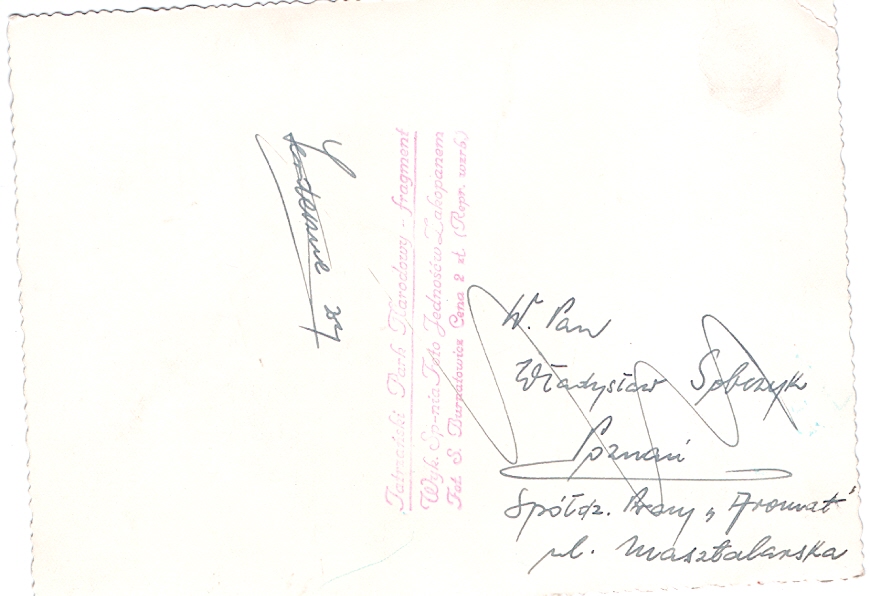 Tatrzański Park Narodowy - fragment
Wyk. Sp-nia Foto Jedność w Zakopanem
Fot. S. Burnatowicz Cena 2 zł. (Repr. wzrb.)
W. Pan
Władysław Sobczyk
Poznań
Spółdz. Pracy „Aromat"
ul. Masztalarska